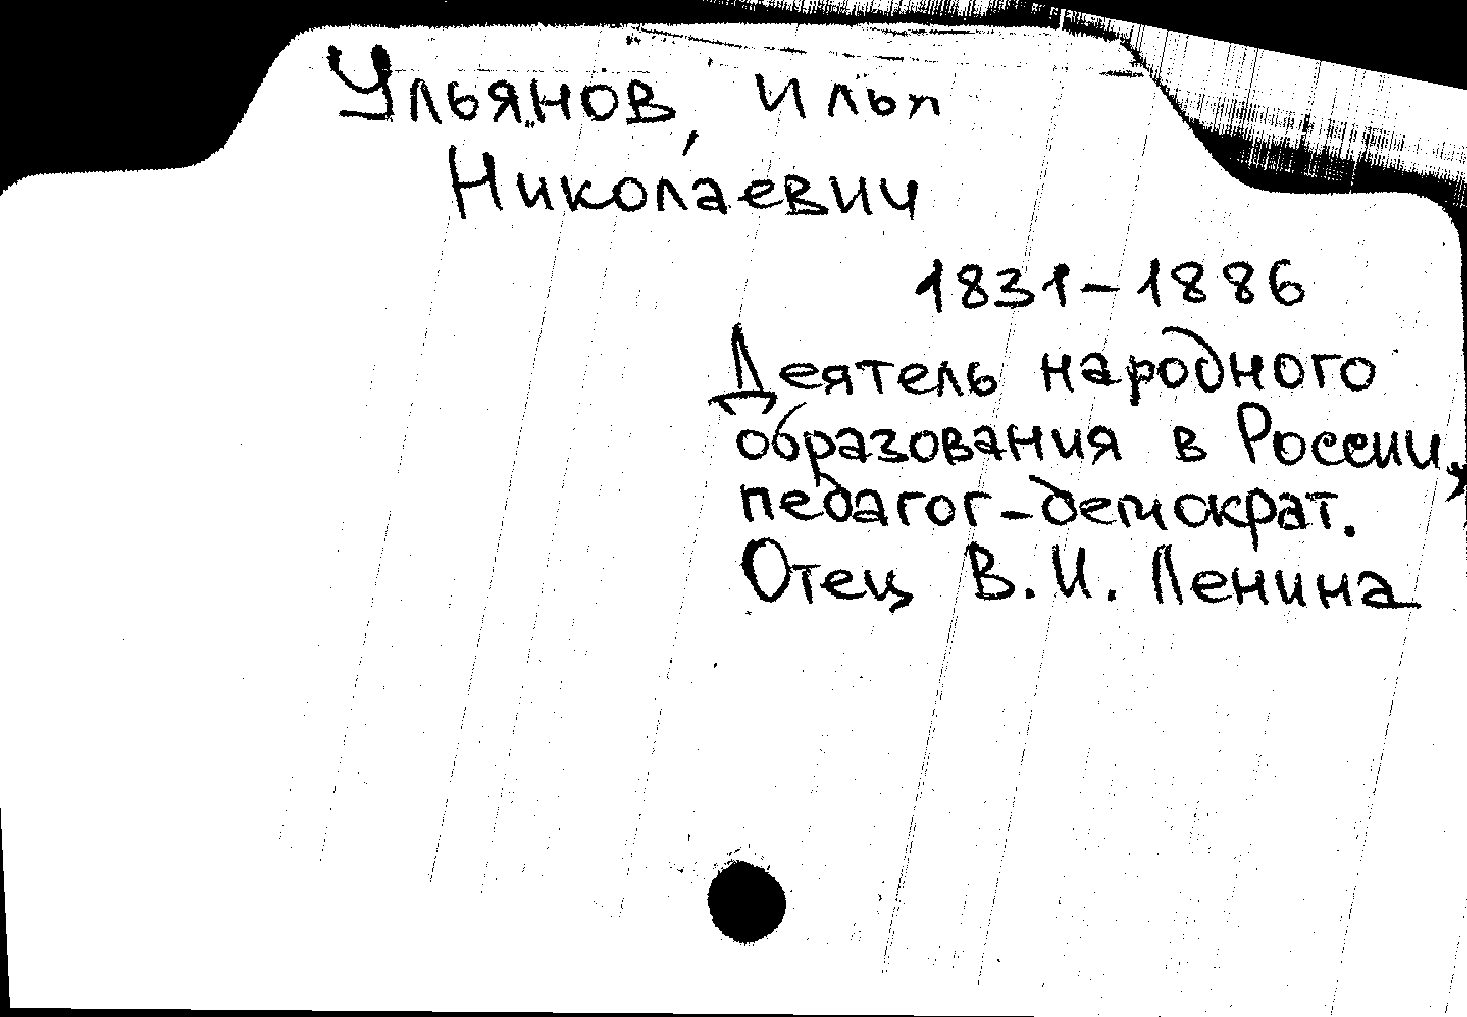 Ульянов, Илья
Николаевич
1831-1886
Деятель народного
образования в России,
педагог-демократ.
Отец В.И. Ленина